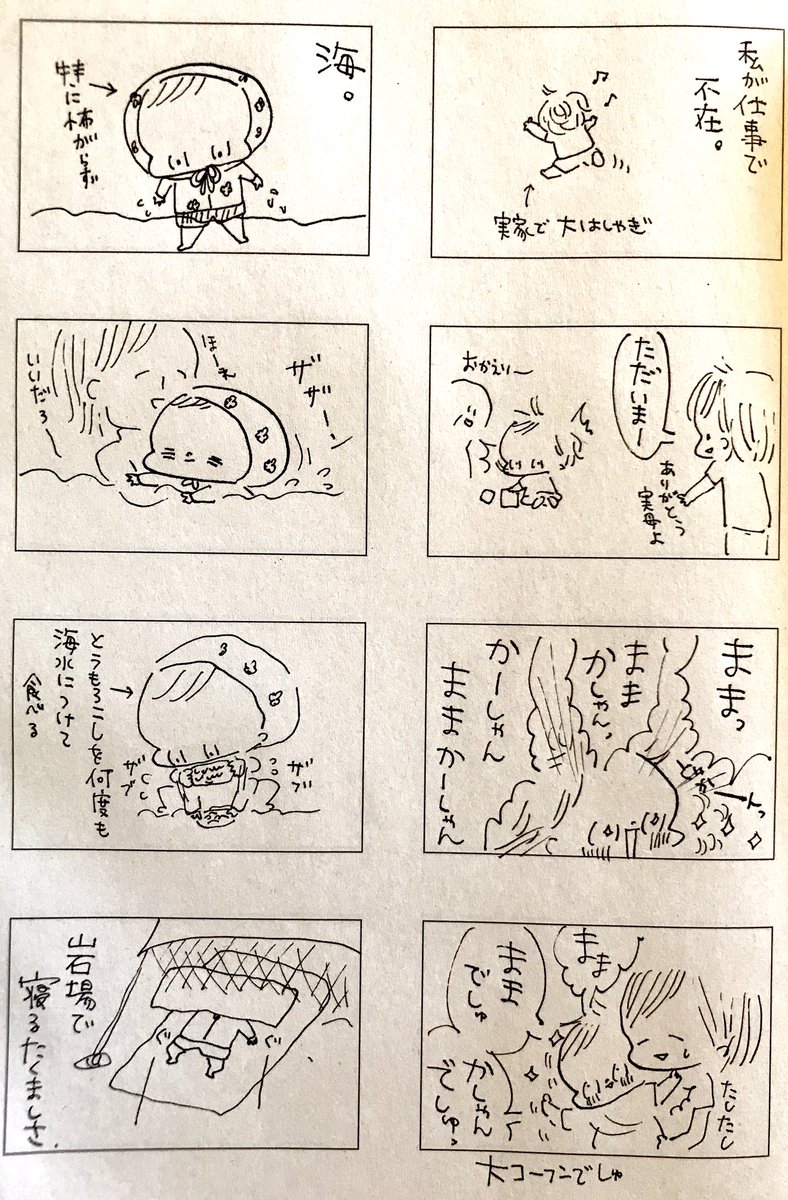 私が仕事で
不在。
実家で大はしゃぎ
ただいまー
おかえりー
ありがとう
実母よ
ままっ
まま
かしゃんっ
かーしゃん
ままかーしゃん
どかーんっ
ままー
まま
でしゅ
かしゃん
でしゅっ
たしたし
大コーフンでしゅ
海。
特に怖がらず
ザザー!
ほーれ
いいだろ〜
とうもろこしを何度も
海水につけて
食べる
ザブ
ザブ
岩場で
寝るたくましさ。